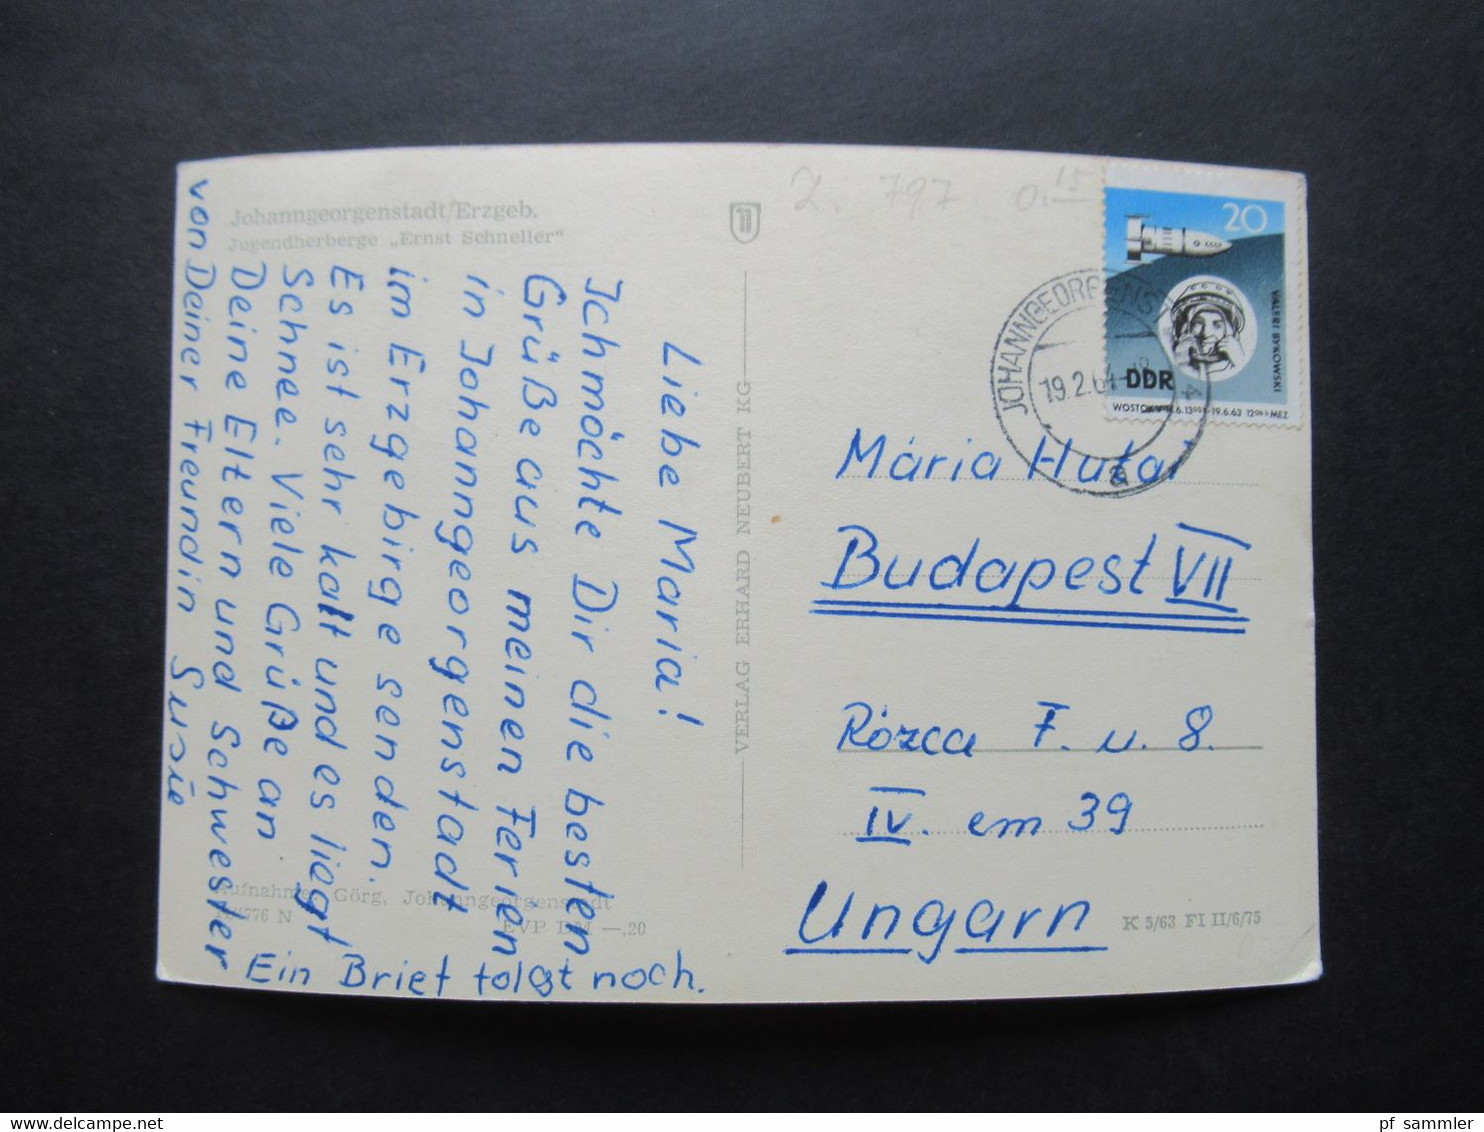 Johanngeorgenstadt/Erzgeb.
Jugendherberge „Ernst Schneller“
Liebe Maria!
Ich möchte Dir die besten
Grüße aus meinen Ferien
in Johanngeorgenstadt
im Erzgebirge senden.
Es ist sehr kalt und es liegt
Schnee. Viele Grüße an
Deine Eltern und Schwester
von Deiner Freundin Susie
Ein Brief folgt noch.
Aufnahme: Görg, Johanngeorgenstadt
EVP DM —,20
VERLAG ERHARD NEUBERT KG
797 0.15
20
VALERI BYKOWSKI
DDR
JOHANNGEORGENST
19.2.64
a
Mária Hutai
Budapest VII
Rózca F. u. 8.
IV. em 39
Ungarn
K 5/63 FI II/6/75
pf_sammler
delcampe.net